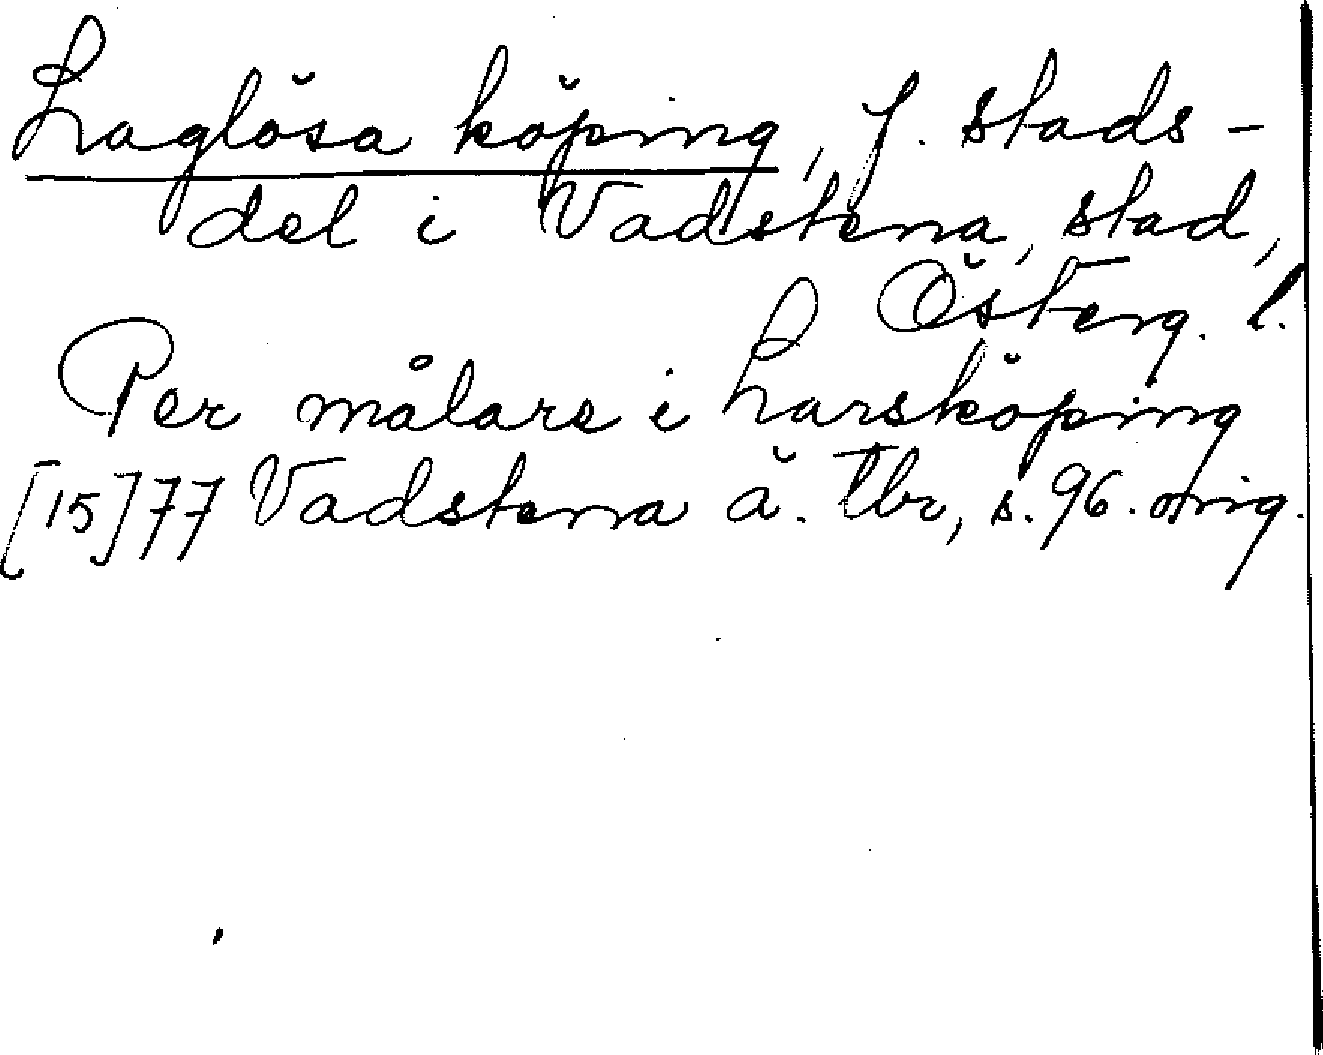 Laglösa köping, f. stads-
del i Vadstena, stad,
Österg. l.
Per målare i Larsköping
[15]77 Vadstena ä. tbr, s. 96. orig.